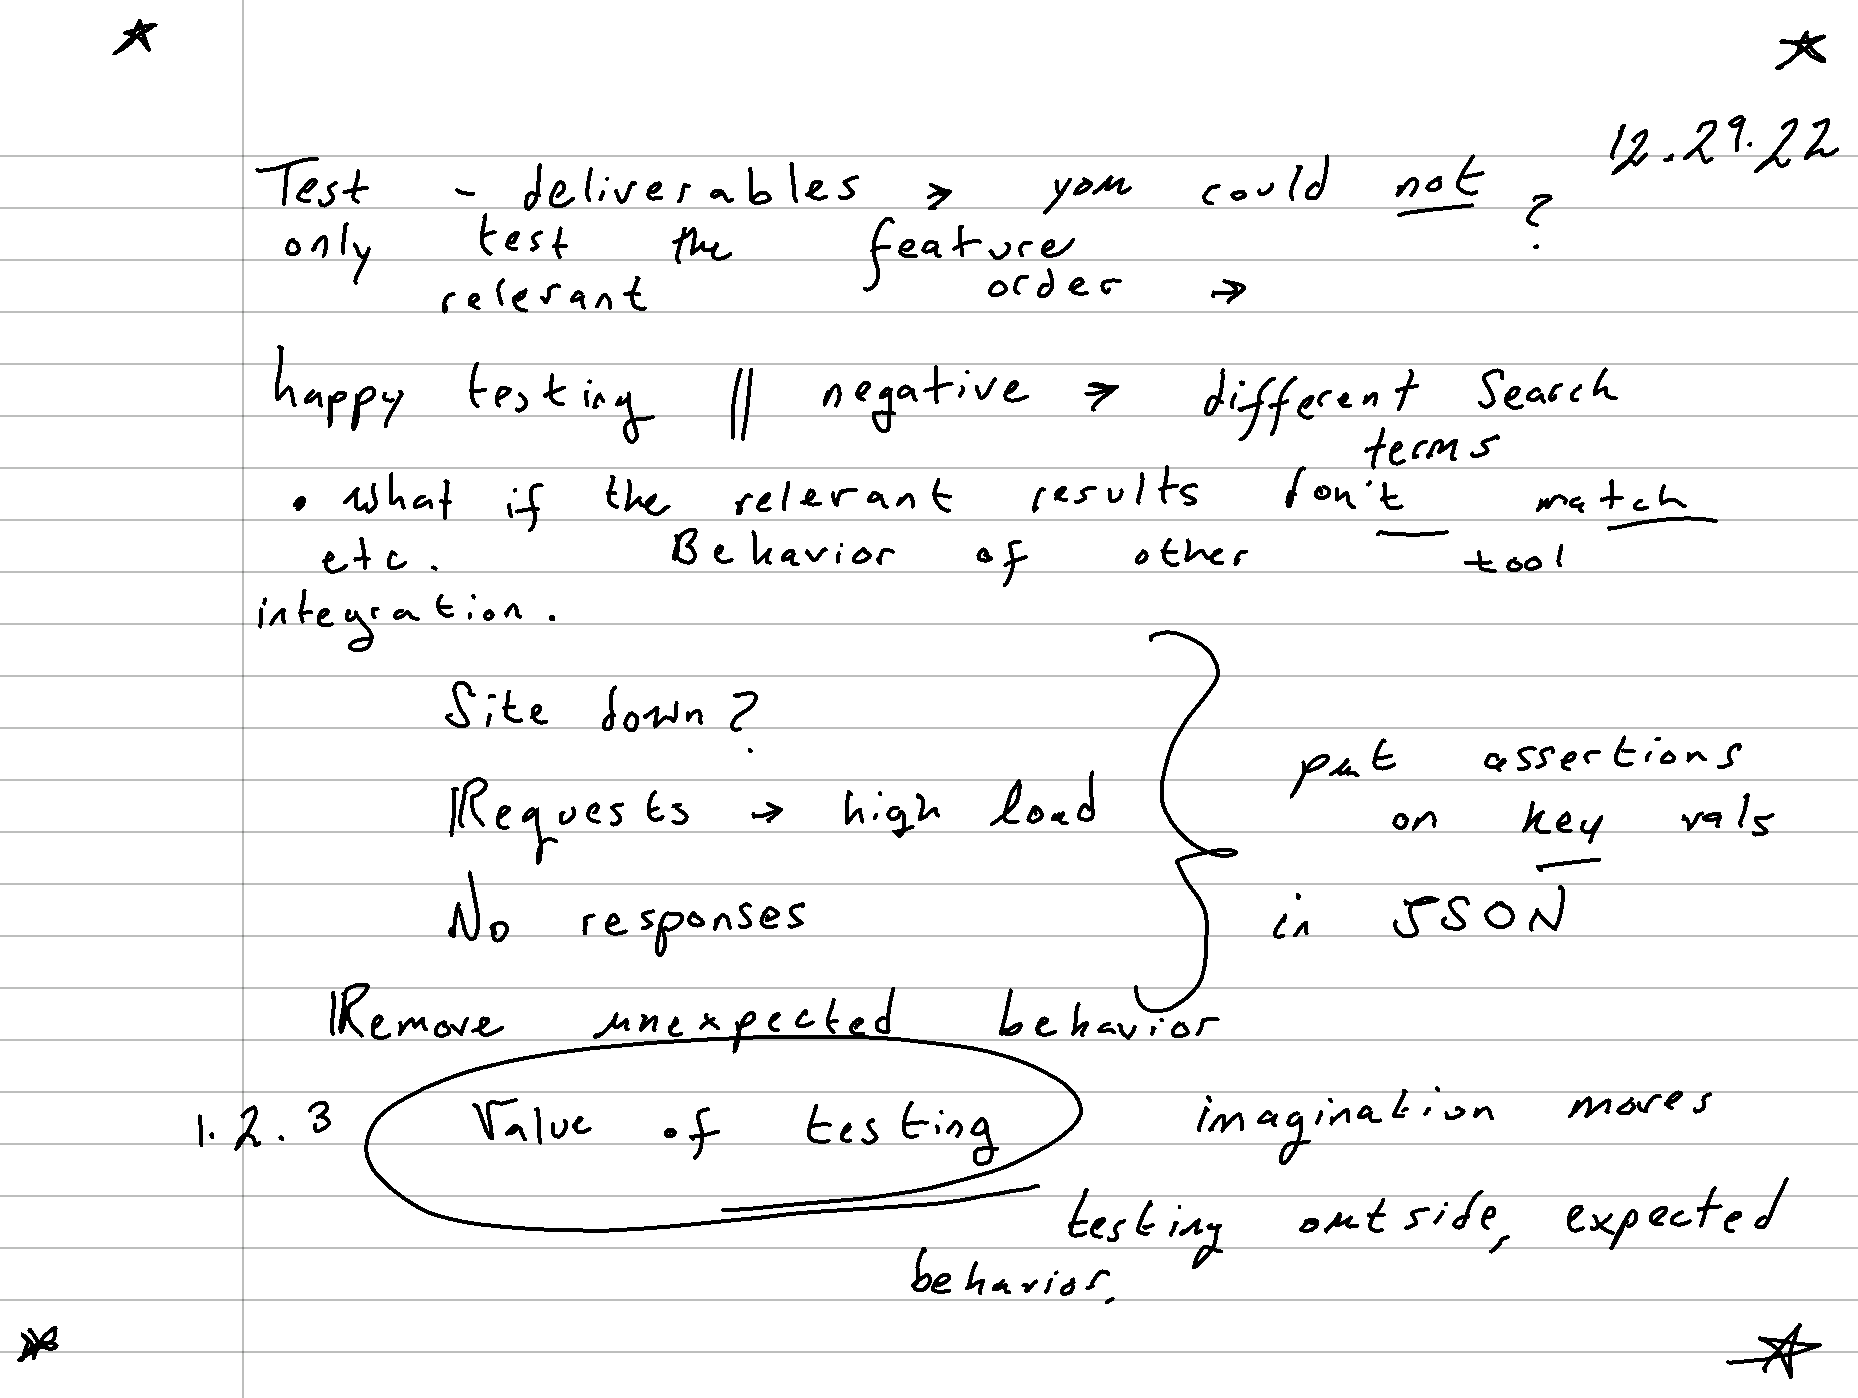 12.29.22
Test - deliverables → you could not ?
only test the feature
relevant order →
happy testing || negative → different Search
terms
• what if the relevant results don't match
etc. Behavior of other tool
integration.
Site down?
Requests → high load
put assertions
on key vals
No responses
in JSON
Remove unexpected behavior
1.2.3 Value of testing imagination moves
testing outside, expected
behavior.